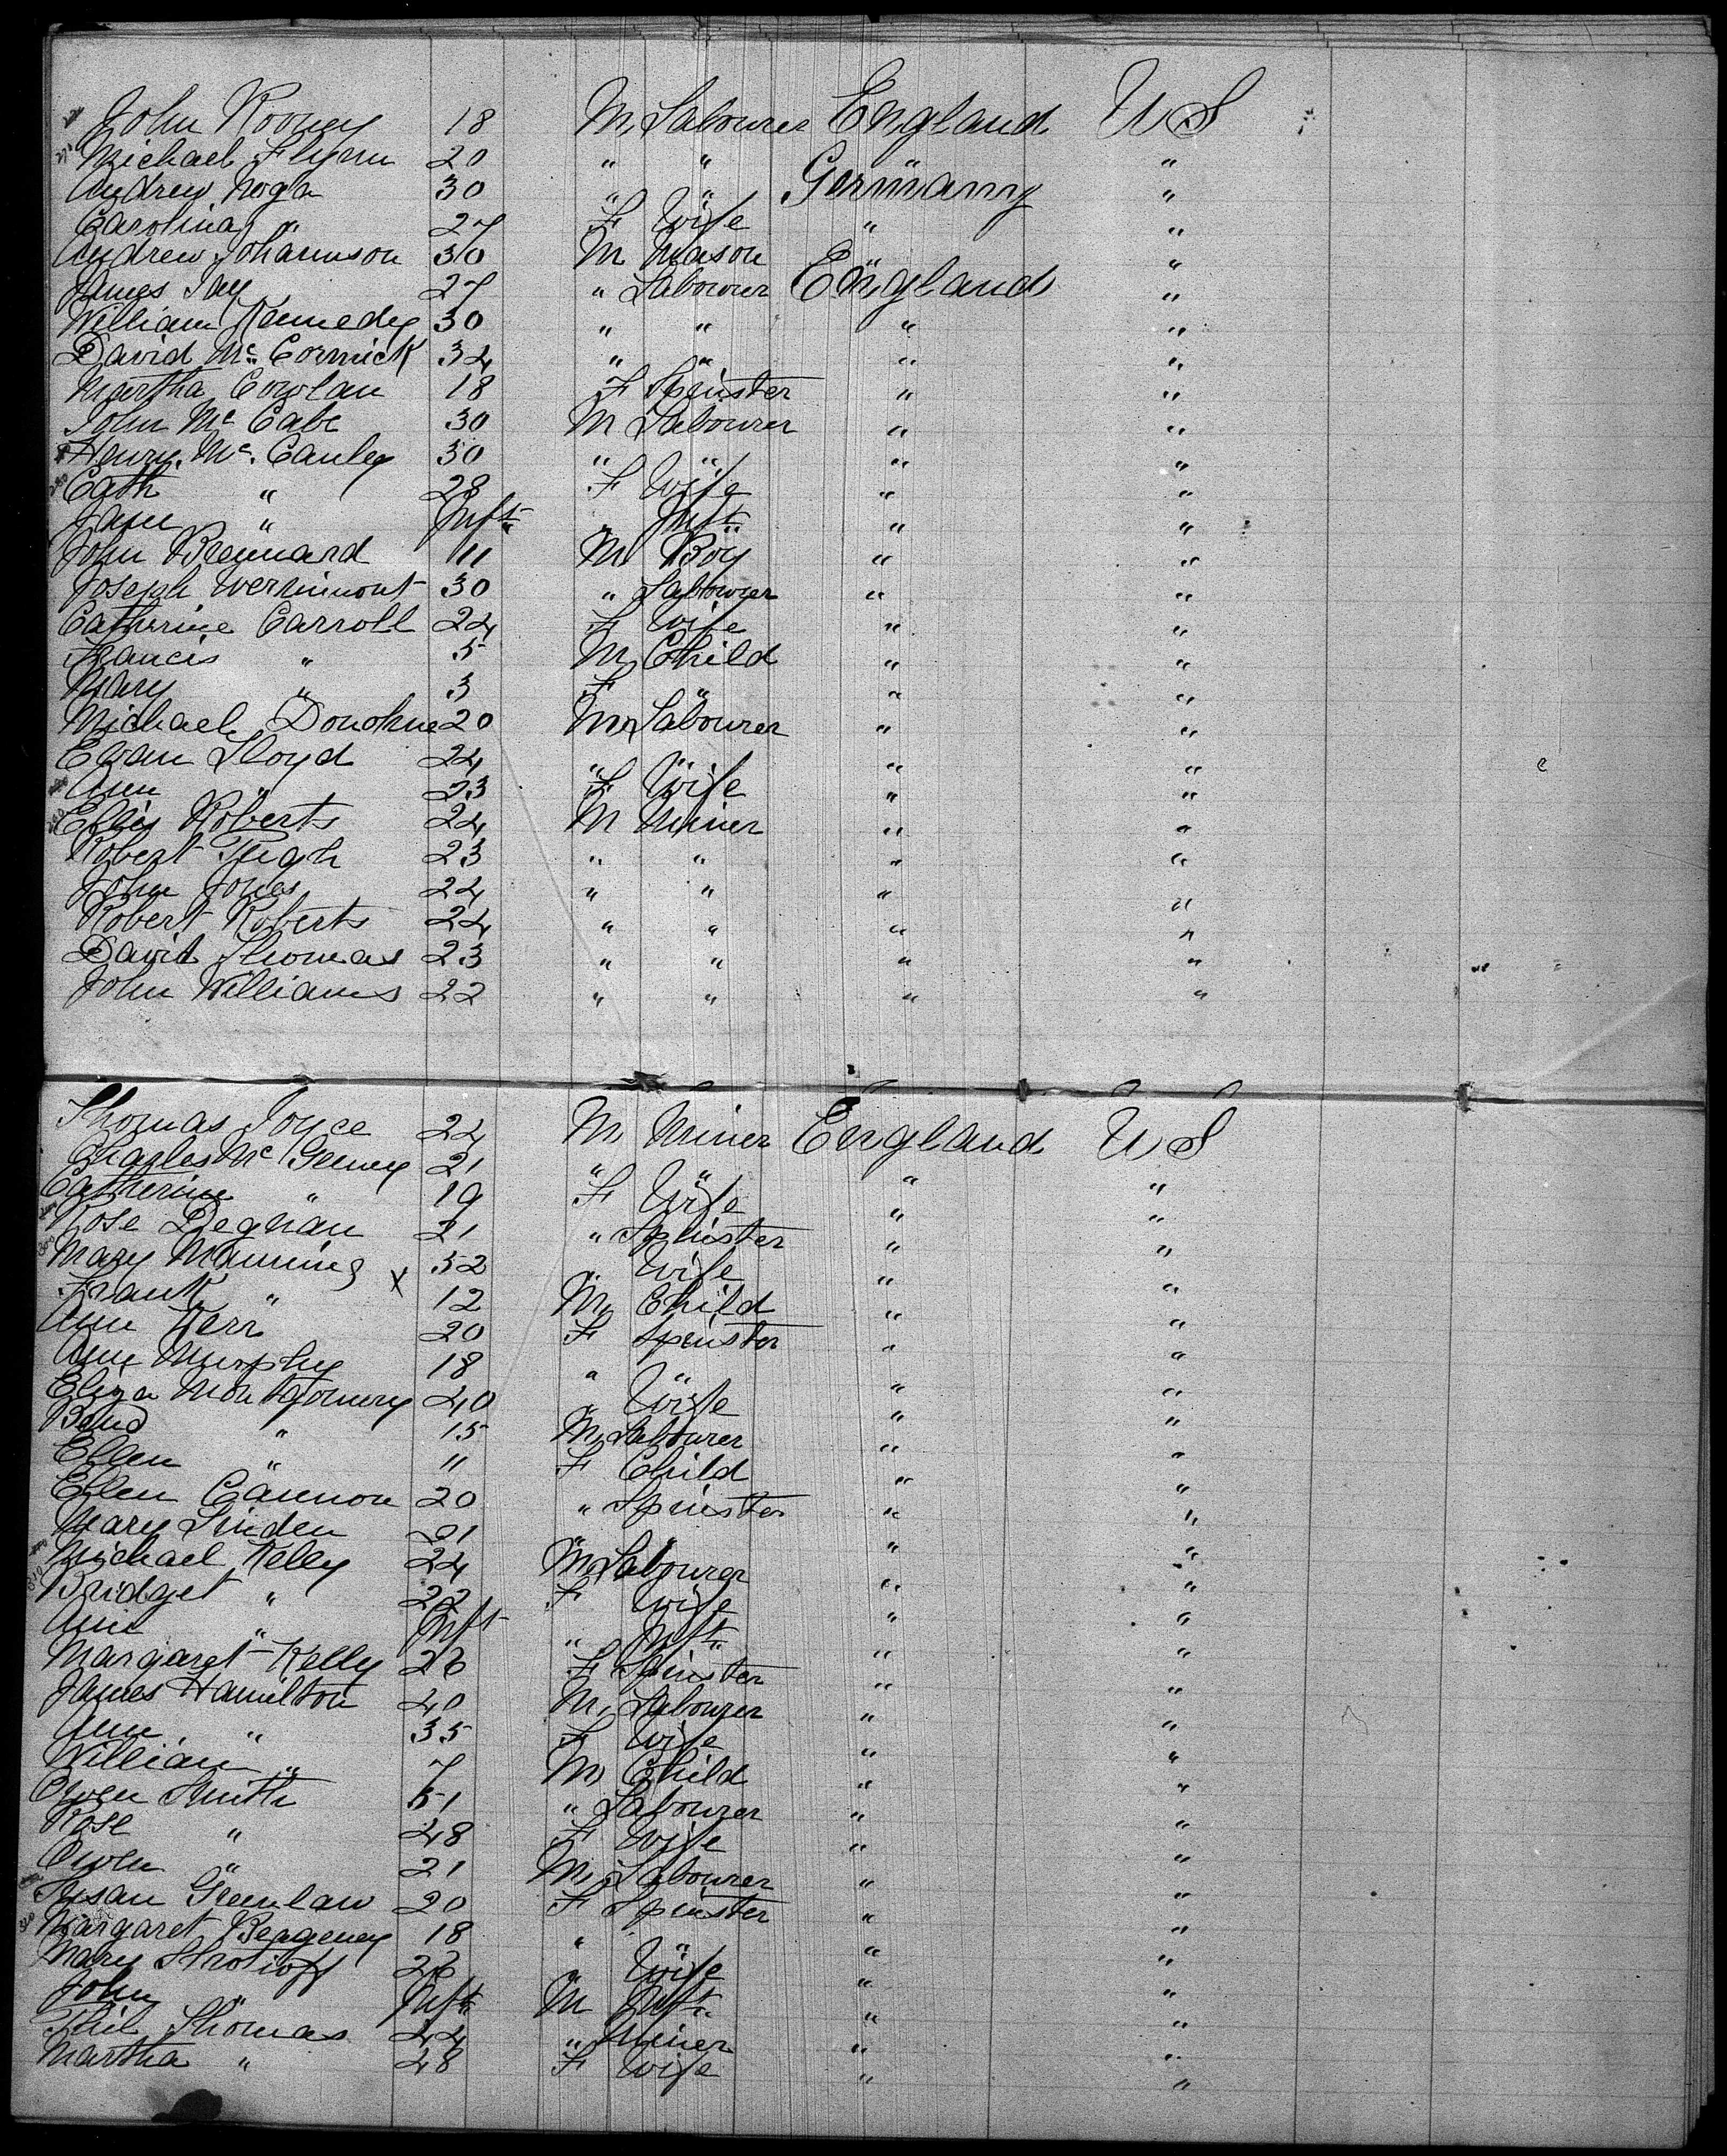 John Rooney 18 M Labourer England U S
Michael Flynn 20 " " "
Andrew Noga 30 " " Germany "
Carolina " 27 F Wife " "
Andrew Johannson 30 M Mason " "
James Jay 27 " Labourer England "
William Kennedy 30 " " " "
David Mc Cormick 34 " " " "
Martha Cowlan 18 F Spinster " "
John Mc Cabe 30 M Labourer " "
Henry Mc Cauley 30 " " " "
280 Cath " 28 F Wife " "
Jane " Inft " Inft " "
John Brennard 11 M Boy " "
Joseph 30 " Labourer " "
Catherine Carroll 24 F Wife " "
Francis " 5 M Child " "
Mary " 3 F " " "
Michael Donohue 20 M Labourer " "
Evan Lloyd 24 " " " "
Ann " 23 F Wife " "
290 Ellis Roberts 24 M Miner " "
Robert Pugh 23 " " " "
John Jones 24 " " " "
Robert Roberts 24 " " " "
David Thomas 23 " " " "
John Williams 22 " " " "
Thomas Joyce 24 M Miner England U S
Charles Mc 21 " " " "
Catherine " 19 F Wife " "
Rose Degnan 21 " Spinster " "
300 Mary Manning x 52 " Wife " "
Frank " 12 M Child " "
Ann Kerr 20 F Spinster " "
Ann Murphy 18 " " " "
Eliza Montgomery 40 " Wife " "
" 15 M Labourer " "
Ellen " 11 F Child " "
Ellen Cannon 20 " Spinster " "
Mary Linden 21 " " " "
Michael Kelly 24 M Labourer " "
310 Bridget " 22 F Wife " "
Ann " Inft " Inft " "
Margaret Kelly 26 F Spinster " "
James Hamilton 40 M Labourer " "
Ann " 35 F Wife " "
William " 7 M Child " "
Owen Smith 51 " Labourer " "
Rose " 48 F Wife " "
Owen " 21 M Labourer " "
Susan Greenlaw 20 F Spinster " "
320 Margaret 18 " " " "
Mary 26 " Wife " "
John " Inft M Inft " "
Phil Thomas 44 " Miner " "
Martha " 48 F Wife " "